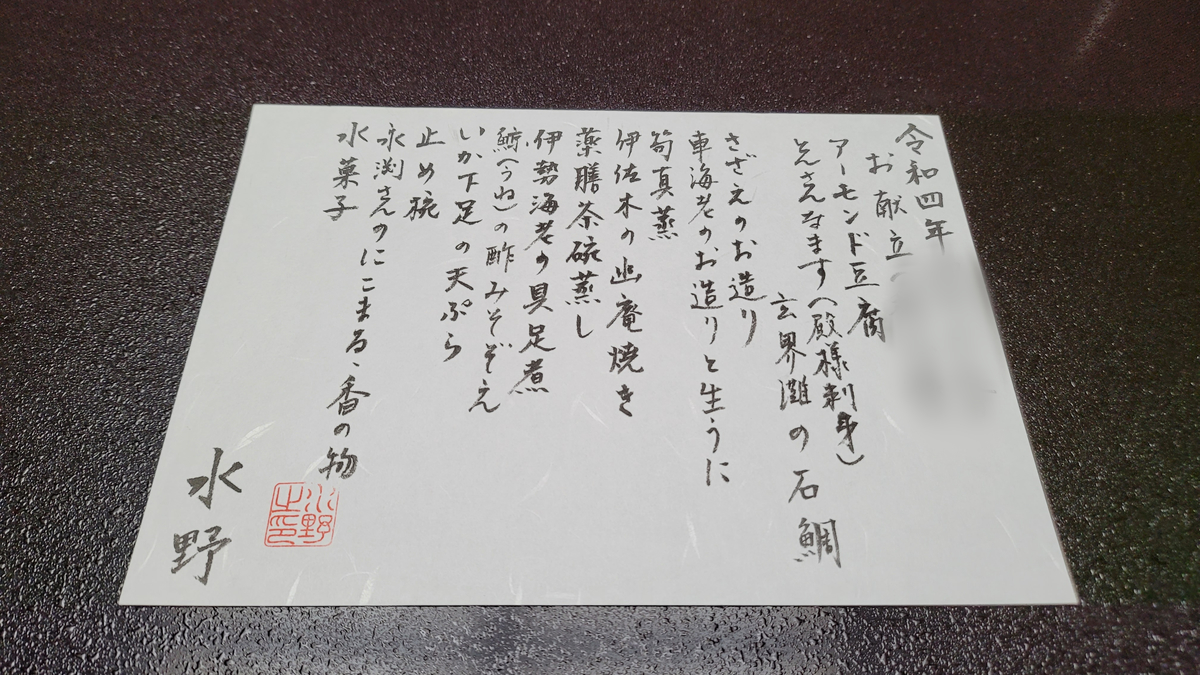 令和四年
お献立
アーモンド豆腐
とんさんなます(殿様刺身)
玄界灘の石鯛
さざえのお造り
車海老のお造りと生うに
筍真蒸
伊佐木の幽庵焼き
薬膳茶碗蒸し
伊勢海老の具足煮
鯨(うね)の酢みそぞえ
いか下足の天ぷら
止め椀
永渕さんのにこまる、香の物
水菓子
水野
水野之印